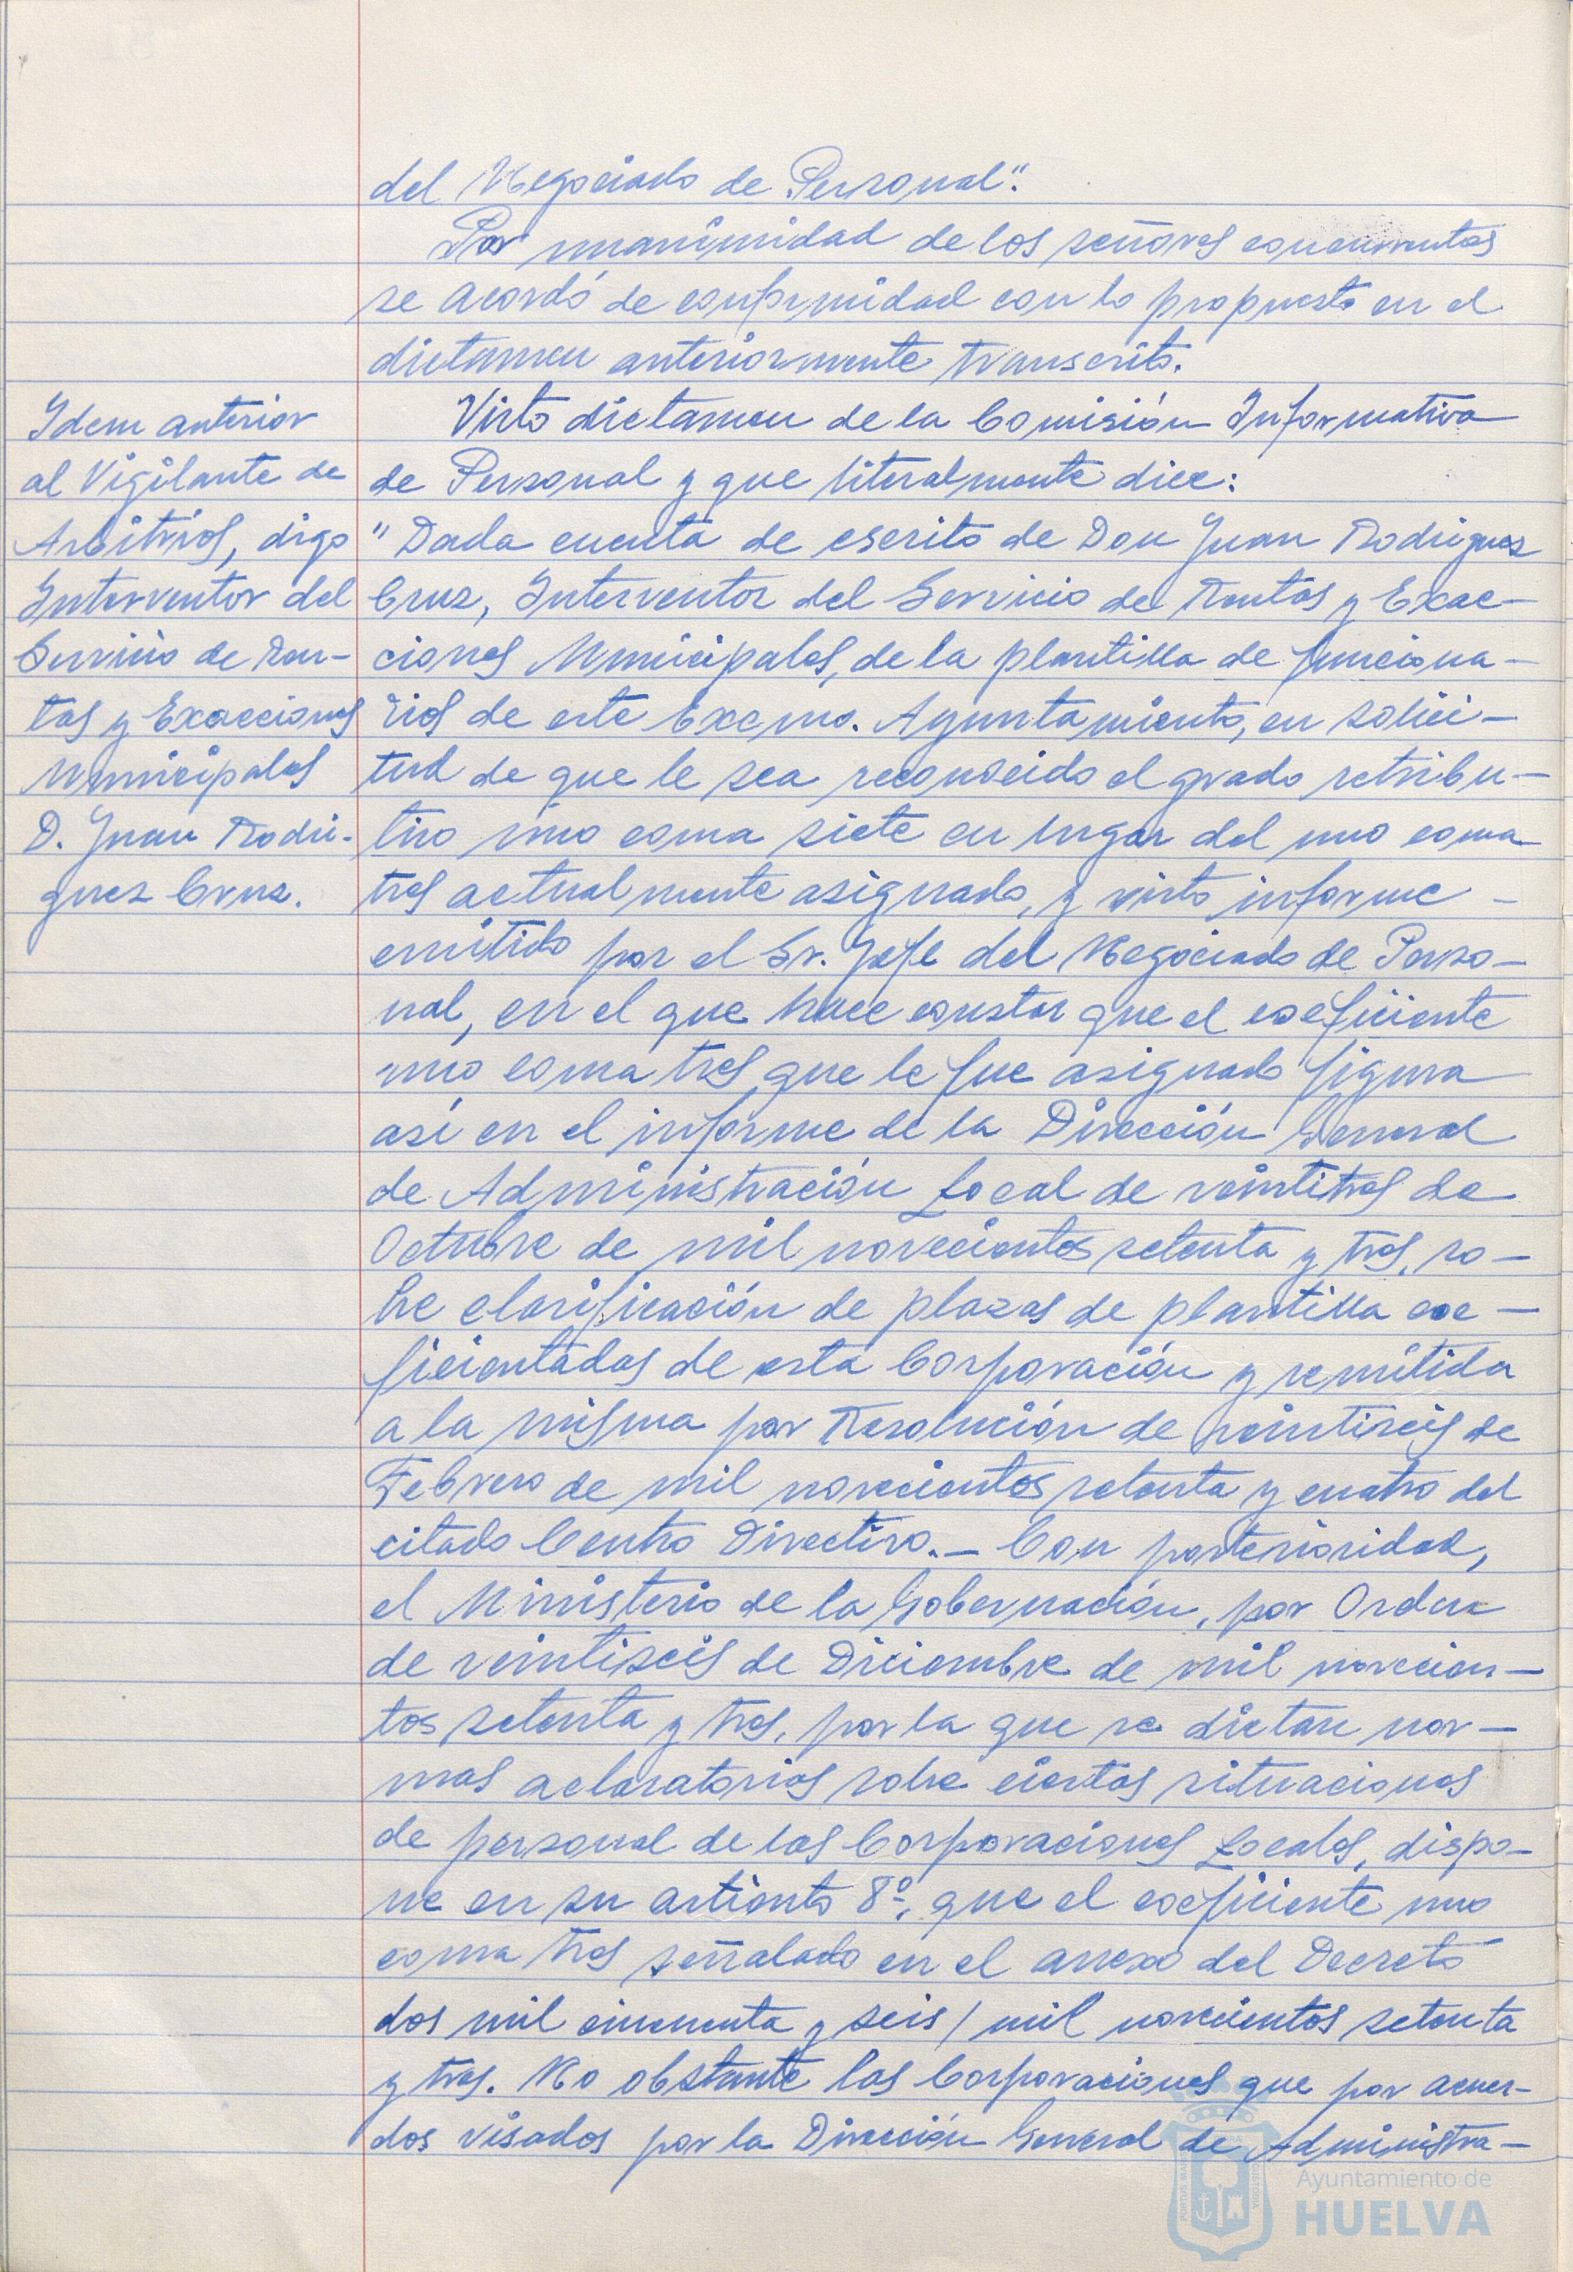 del Negociado de Personal".
Por unanimidad de los señores concurrentes
se acordó de conformidad con lo propuesto en el
dictamen anteriormente transcrito.
Idem anterior
al Vigilante de
Arbitrios, digo
Interventor del
Servicio de Ren-
tas y Exacciones
Municipales
D. Juan Rodri-
guez Cruz.
Visto dictamen de la Comisión Informativa
de Personal y que literalmente dice:
"Dada cuenta de escrito de Don Juan Rodriguez
Cruz, Interventor del Servicio de Rentas y Exac-
ciones Municipales, de la plantilla de funciona-
rios de este Excmo. Ayuntamiento, en solici-
tud de que le sea reconocido el grado retribu-
tivo uno coma siete en lugar del uno coma
tres actualmente asignado, y visto informe -
emitido por el Sr. Jefe del Negociado de Perso-
nal, en el que hace constar que el coeficiente
uno coma tres que le fue asignado figura
así en el informe de la Dirección General
de Administración Local de veintitres de
Octubre de mil novecientos setenta y tres, so-
bre clasificación de plazas de plantilla coe-
ficientadas de esta Corporación y remitida
a la misma por Resolución de veintiseis de
Febrero de mil novecientos setenta y cuatro del
citado Centro Directivo.- Con posterioridad,
el Ministerio de la Gobernación, por Orden
de veintiseis de Diciembre de mil novecien-
tos setenta y tres, por la que se dictan nor-
mas aclaratorias sobre ciertas situaciones
de personal de las Corporaciones Locales, dispo-
ne en su 8º, que el coeficiente uno
coma tres señalado en el anexo del Decreto
dos mil cincuenta y seis / mil novecientos setenta
y tres. No obstante las Corporaciones que por acuer-
dos visados por la Dirección General de Administra-
PORTUS MARIS CUSTODIA
Ayuntamiento de
HUELVA